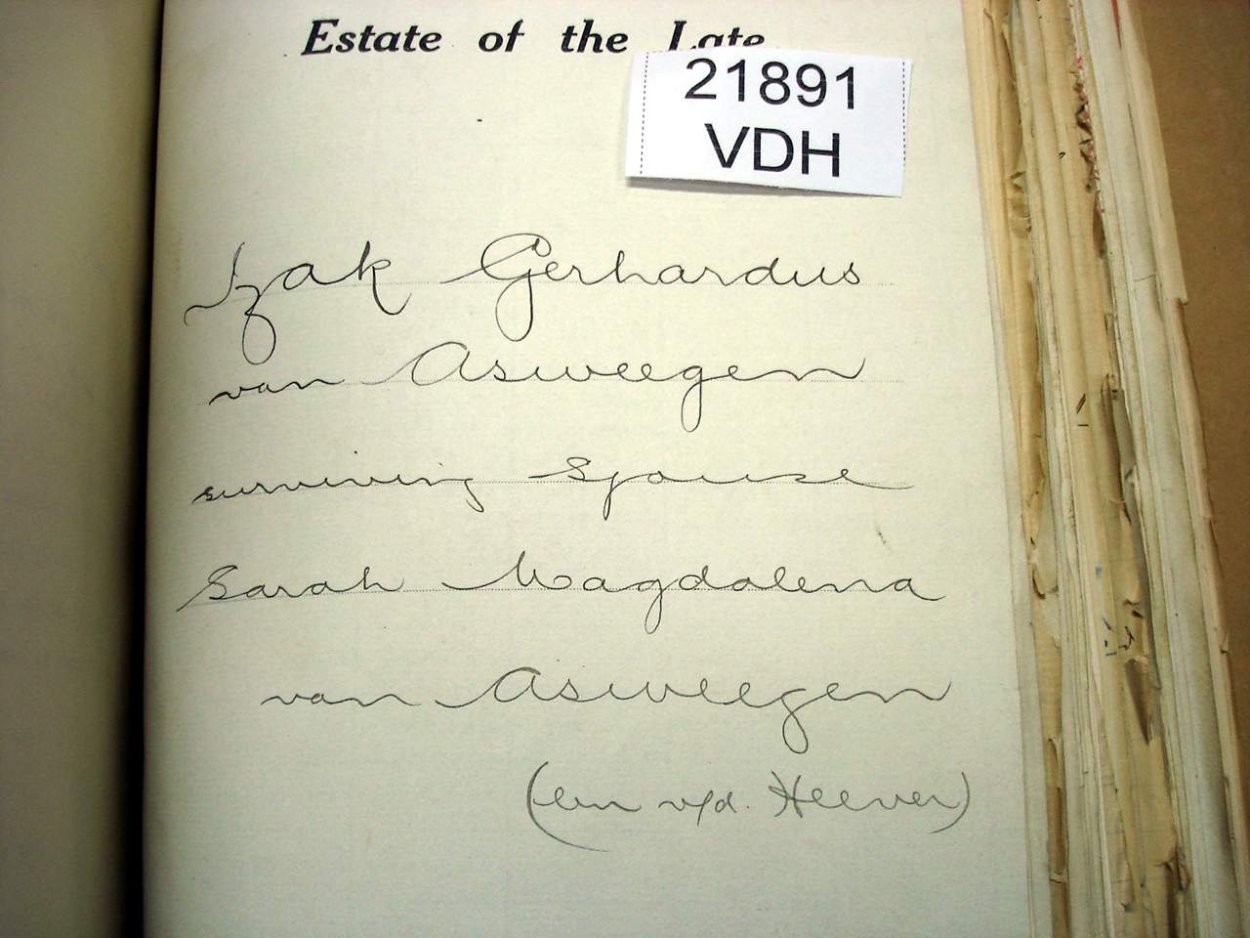 Estate of the Late
21891
VDH
Izak Gerhardus
van Asweegen
surviving Spouse
Sarah Magdalena
van Asweegen
( v/d. Heever)